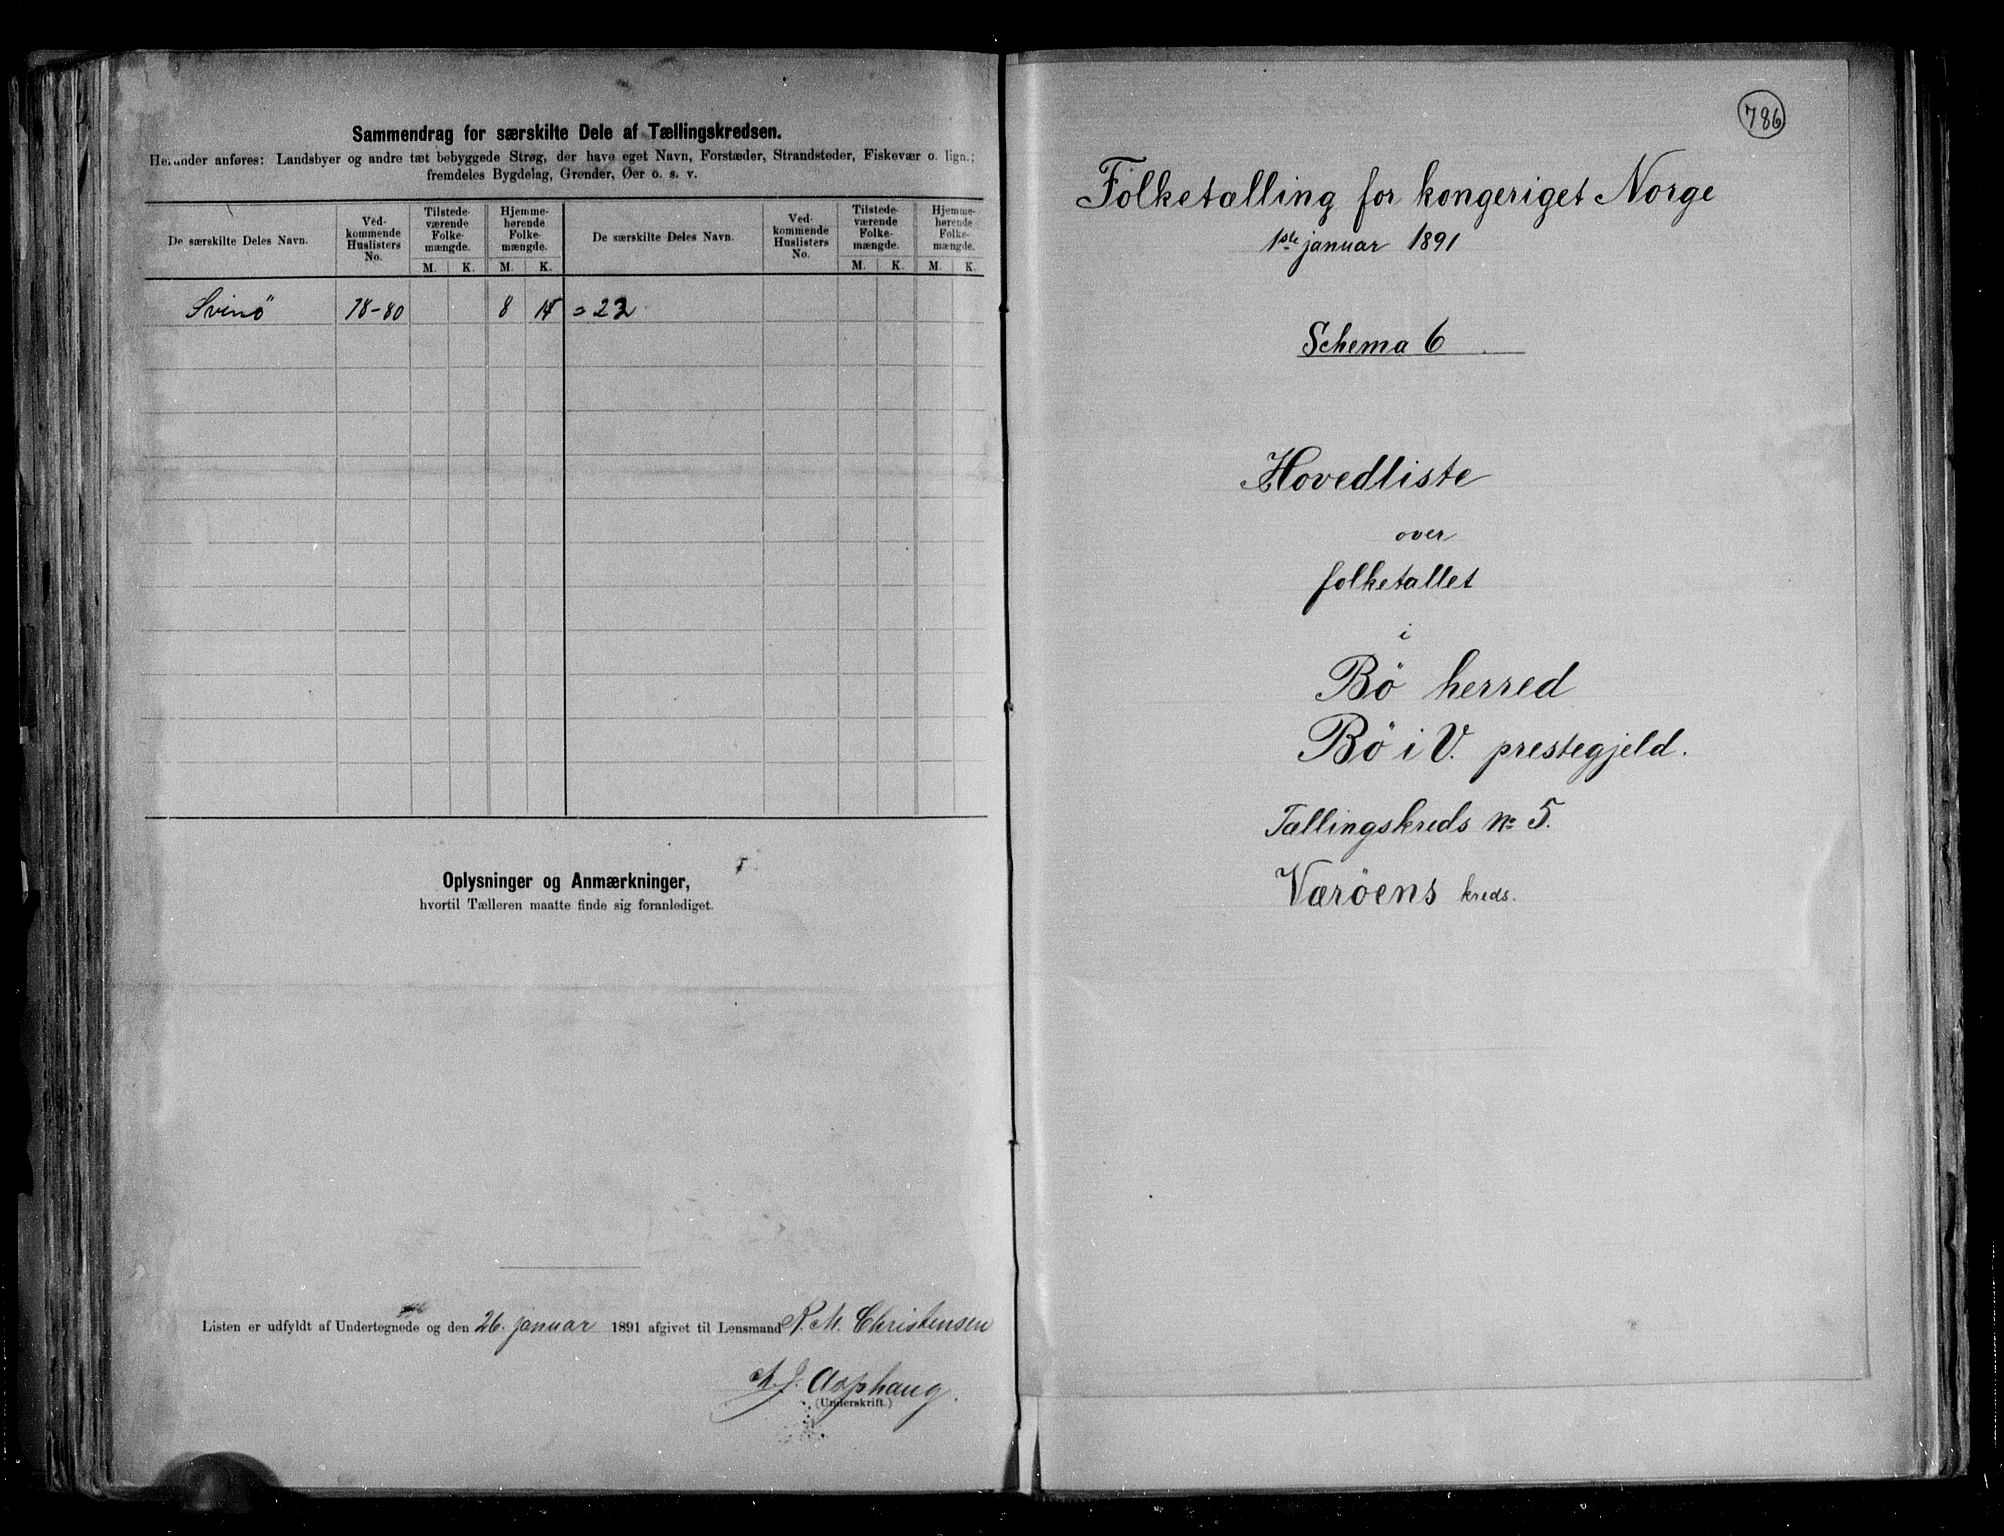 Sammendrag for særskilte Dele af Tællingskredsen.
Herunder anføres: Landsbyer og andre tæt bebyggede Strøg, der have eget Navn, Forstæder, Strandsteder, Fiskevær o. lign.;
fremdeles Bygdelag, Grender, Øer o. s. v.
De særskilte Deles Navn.
Ved-
kommende
Huslisters
No.
Tilstede-
værende
Folke-
mængde.
M. K.
Hjemme-
hørende
Folke-
mængde.
M. K.
De særskilte Deles Navn.
Ved-
kommende
Huslisters
No.
Tilstede-
værende
Folke-
mængde.
M. K.
Hjemme-
hørende
Folke-
mængde.
M. K.
Svinö 78-80 8
Oplysninger og Anmærkninger,
hvortil Tælleren maatte finde sig foranlediget.
Listen er udfyldt af Undertegnede og den 26. januar 1891 afgivet til Lensmand M. Christensen
Asphaug.
(Underskrift.)
786
Folketælling for kongeriget Norge
1ste januar 1891
Schema 6
Hovedliste
over
folketallet
i
Bö herred
Bö i V. prestegjeld.
Tællingskreds No 5.
Væröens kreds.